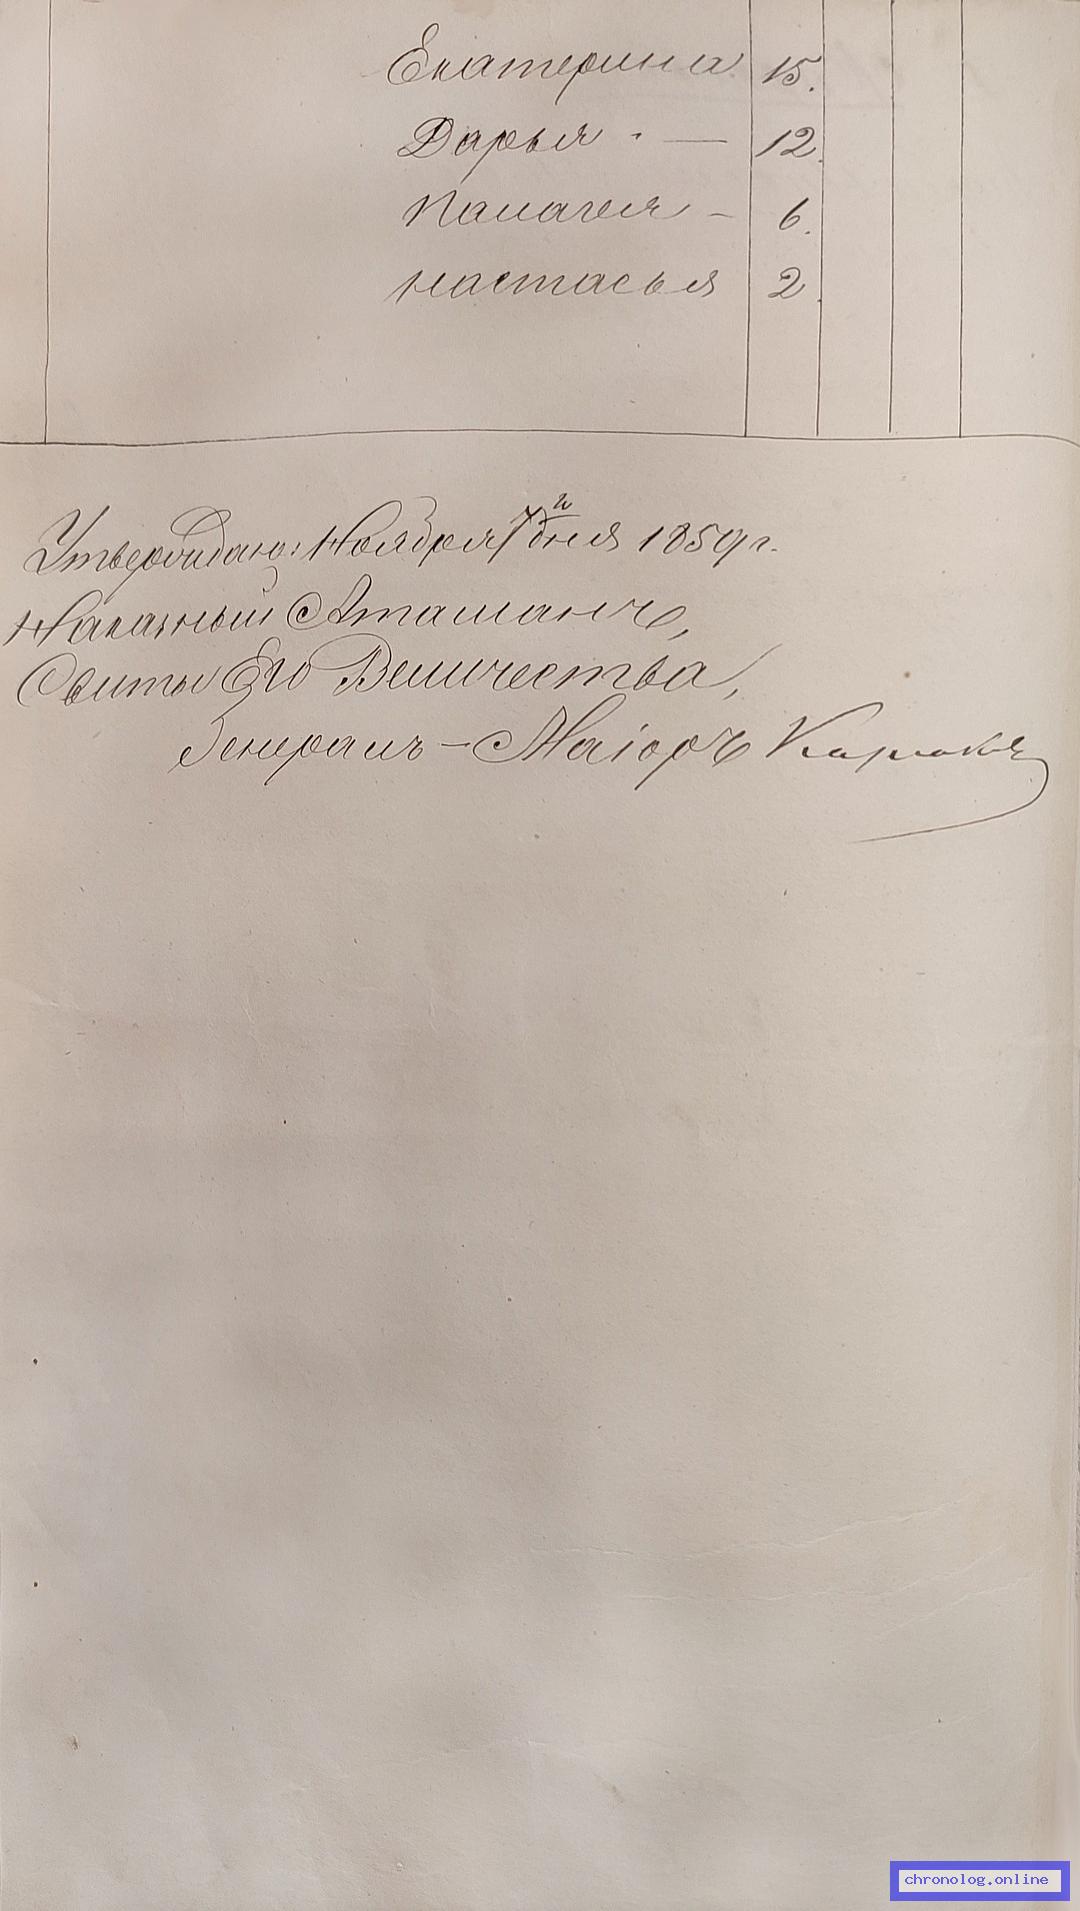 Екатерина 15.
Дарья - — 12.
Палагея - 6.
Настасья 2.
Утверждаю: Ноября 7 й дня 1859 г.
Наказный Атаманъ,
Свиты Его Величества,
Генералъ-Маіоръ
chronolog.online